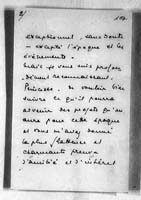 2/
exceptionnel, sans doute
- excepté l'époque et les
événements -
Mais je vous suis profon-
dément reconnaissant,
Princesse, de vouloir bien
suivre ce qu'il pourra
advenir des projets qu'on
aura pour cette époque
et vous m'avez donné
la plus flatteuse et
charmante preuve
d'amitié et d'intérêt